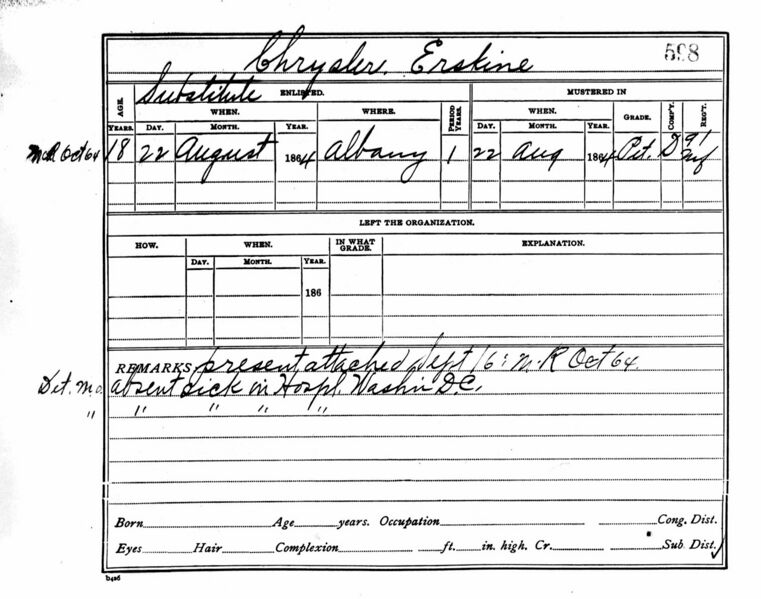 Chrysler, Erskine 598
Substitute ENLISTED. MUSTERED IN
AGE. WHEN. WHERE. PERIOD YEARS. WHEN. GRADE. COMP'Y. REG'T.
YEARS. DAY. MONTH. YEAR. DAY. MONTH. YEAR.
M R Oct 64 18 22 August 1864 Albany 1 22 Aug 1864 Pvt. D 91
LEFT THE ORGANIZATION.
HOW. WHEN. IN WHAT GRADE. EXPLANATION.
DAY. MONTH. YEAR.
186
REMARKS present, attached Sept 16: M. R Oct 64.
absent sick in Hospl. Washn D.C.
" " " " "
Born Age years. Occupation Cong. Dist.
Eyes Hair Complexion ft. in. high. Cr. Sub Dist.
b426